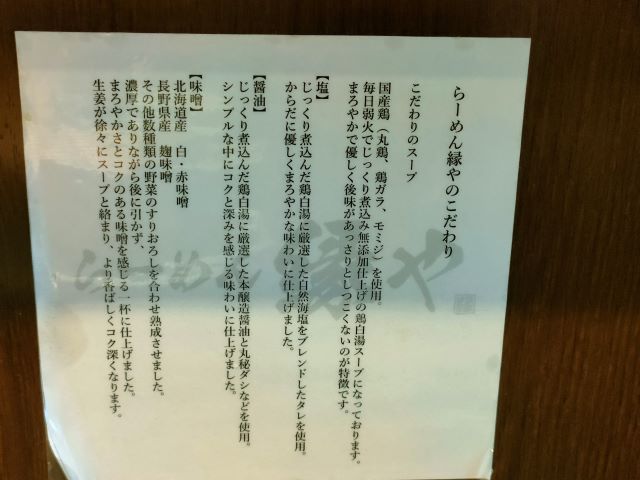 らーめん縁やのこだわり
こだわりのスープ
国産鶏（丸鶏、鶏ガラ、モミジ）を使用。
毎日弱火でじっくり煮込み無添加仕上げの鶏白湯スープになっております。
まろやかで優しく後味があっさりとしつこくないのが特徴です。
【塩】
じっくり煮込んだ鶏白湯に厳選した自然海塩をブレンドしたタレを使用。
からだに優しくまろやかな味わいに仕上げました。
【醤油】
じっくり煮込んだ鶏白湯に厳選した本醸造醤油と丸秘ダシなどを使用。
シンプルな中にコクと深みを感じる味わいに仕上げました。
【味噌】
北海道産　白・赤味噌
長野県産　麹味噌
その他数種類の野菜のすりおろしを合わせ熟成させました。
濃厚でありながら後に引かず、
まろやかさとコクのある味噌を感じる一杯に仕上げました。
生姜が徐々にスープと絡まり、より香ばしくコク深くなります。
らーめん縁や